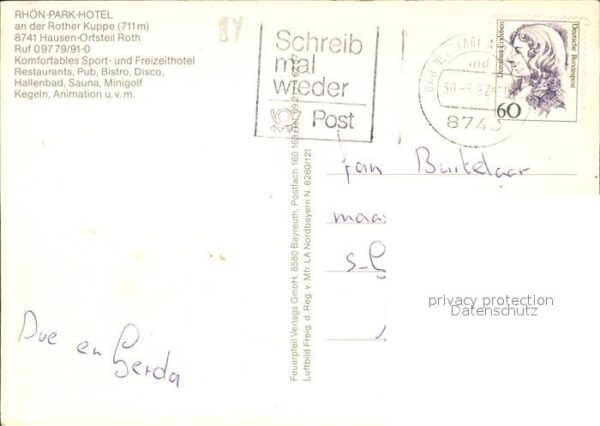 RHÖN-PARK-HOTEL
an der Rother Kuppe (711 m)
8741 Hausen-Ortsteil Roth
Ruf 0 97 79/91-0
Komfortables Sport- und Freizeithotel
Restaurants, Pub, Bistro, Disco,
Hallenbad, Sauna, Minigolf
Kegeln, Animation u.v.m.
Schreib
mal
wieder
Post
8740
Dorothea Erxleben
Deutsche Bundespost
60
Jan Buitelaar
maa
s-G
privacy protection
Datenschutz
Feuerpfeil Verlags GmbH, 8580 Bayreuth, Postfach 160 163
Luftbild Freig. d. Reg. v. Mfr. LA Nordbayern N. 6260/121
en Gerda